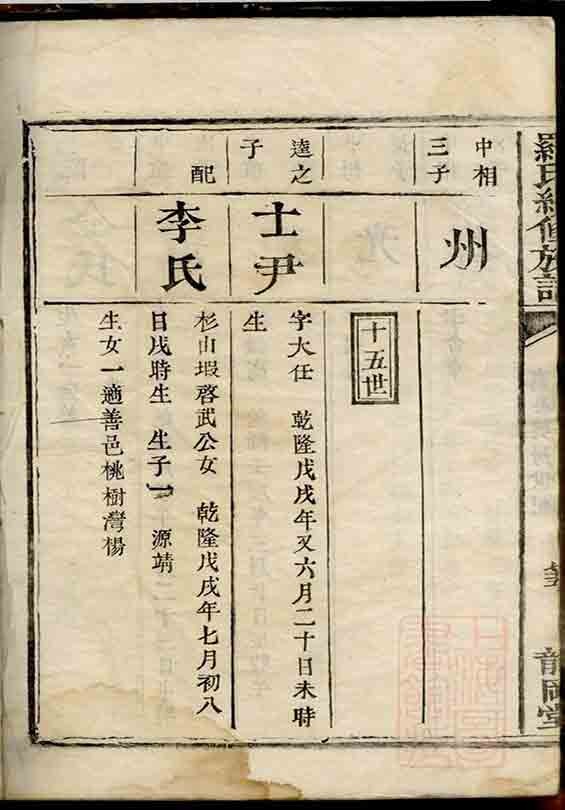 羅氏續修族譜
中相
三子
州
十五世
逵之
子
士尹
字大任 乾隆戊戌年又六月二十日未時
生
配
李氏
杉山塅啓武公女 乾隆戊戌年七月初八
日戌時生 生子一 源靖
生女一適善邑桃樹灣楊